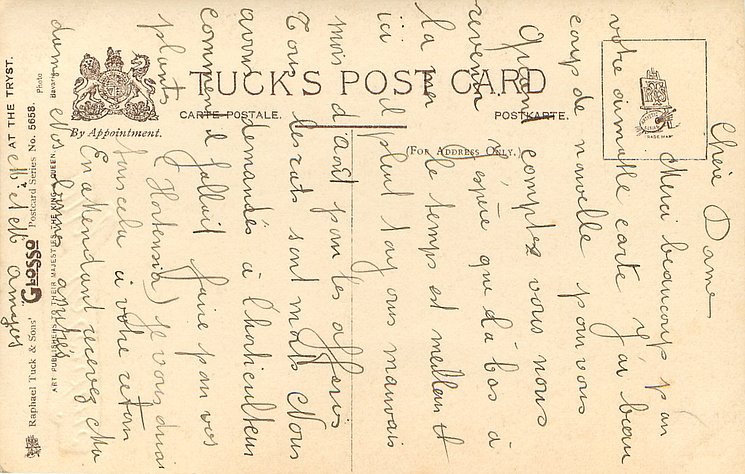 TUCK'S POST CARD
CARTE POSTALE. POSTKARTE.
By Appointment.
(For Address Only.)
TRADE MARK
Raphael Tuck & Sons' "GLOSSO" Postcard Series No. 5658. AT THE TRYST.
ART PUBLISHERS TO THEIR MAJESTIES THE KING & QUEEN.
Photo
Bavaria
Chère Dame
Merci beaucoup p
votre aimable carte j'ai beau
coup de nouvelle pour vous
Quand comptez vous nous
revenir J'espère que là bas à
la mer le temps est meilleur et
ici il pleut toujours mauvais
mois d'août pour les affaires
Tous les rats sont morts Nous
avons demandés à l'horticulteur
comment il fallait faire pour vos
plants (Hortensia) je vous dirai
tous cela à votre retour
En attendant recevez Ma
dame Nos bonnes amitiés
M et Me